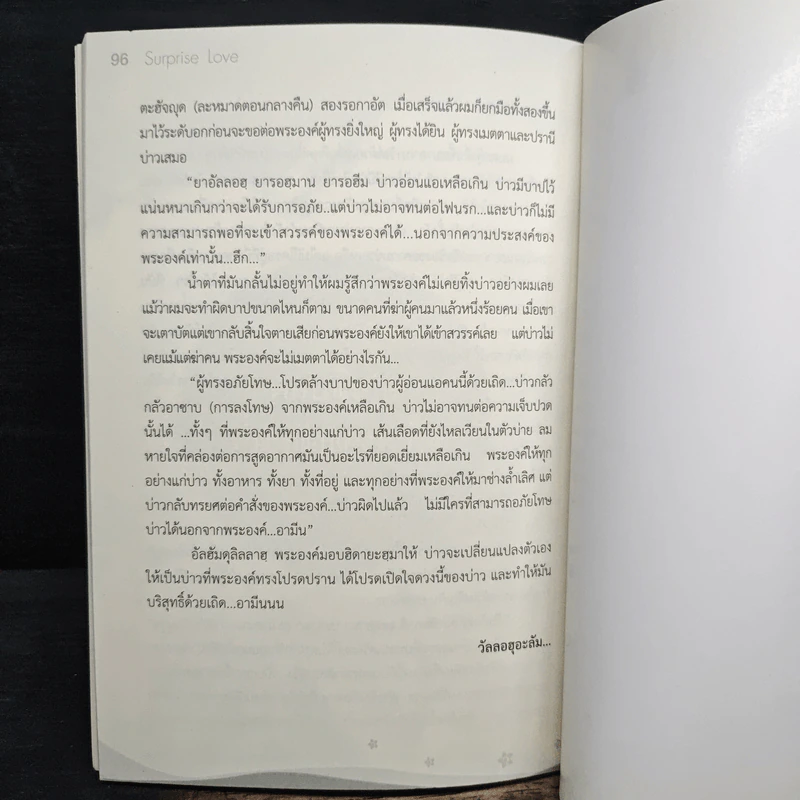 96 Surprise Love
ตะฮัจญุด (ละหมาดตอนกลางคืน) สองรอกาอัต เมื่อเสร็จแล้วผมก็ยกมือทั้งสองขึ้น
มาไว้ระดับอกก่อนจะขอต่อพระองค์ผู้ทรงยิ่งใหญ่ ผู้ทรงได้ยิน ผู้ทรงเมตตาและปรานี
บ่าวเสมอ
“ยาอัลลอฮฺ ยารอฮฺมาน ยารอฮีม บ่าวอ่อนแอเหลือเกิน บ่าวมีบาปไว้
แน่นหนาเกินกว่าจะได้รับการอภัย..แต่บ่าวไม่อาจทนต่อไฟนรก...และบ่าวก็ไม่มี
ความสามารถพอที่จะเข้าสวรรค์ของพระองค์ได้...นอกจากความประสงค์ของ
พระองค์เท่านั้น...ฮึก...”
น้ำตาที่มันกลั้นไม่อยู่ทำให้ผมรู้สึกว่าพระองค์ไม่เคยทิ้งบ่าวอย่างผมเลย
แม้ว่าผมจะทำผิดบาปขนาดไหนก็ตาม ขนาดคนที่ฆ่าผู้คนมาแล้วหนึ่งร้อยคน เมื่อเขา
จะเตาบัตแต่เขากลับสิ้นใจตายเสียก่อนพระองค์ยังให้เขาได้เข้าสวรรค์เลย แต่บ่าวไม่
เคยแม้แต่ฆ่าคน พระองค์จะไม่เมตตาได้อย่างไรกัน...
“ผู้ทรงอภัยโทษ...โปรดล้างบาปของบ่าวผู้อ่อนแอคนนี้ด้วยเถิด...บ่าวกลัว
กลัวอาซาบ (การลงโทษ) จากพระองค์เหลือเกิน บ่าวไม่อาจทนต่อความเจ็บปวด
นั้นได้ ...ทั้งๆ ที่พระองค์ให้ทุกอย่างแก่บ่าว เส้นเลือดที่ยังไหลเวียนในตัวบ่าย ลม
หายใจที่คล่องต่อการสูดอากาศมันเป็นอะไรที่ยอดเยี่ยมเหลือเกิน พระองค์ให้ทุก
อย่างแก่บ่าว ทั้งอาหาร ทั้งยา ทั้งที่อยู่ และทุกอย่างที่พระองค์ให้มาช่างล้ำเลิศ แต่
บ่าวกลับทรยศต่อคำสั่งของพระองค์...บ่าวผิดไปแล้ว ไม่มีใครที่สามารถอภัยโทษ
บ่าวได้นอกจากพระองค์...อามีน”
อัลฮัมดุลิลลาฮฺ พระองค์มอบฮิดายะฮฺมาให้ บ่าวจะเปลี่ยนแปลงตัวเอง
ให้เป็นบ่าวที่พระองค์ทรงโปรดปราน ได้โปรดเปิดใจดวงนี้ของบ่าว และทำให้มัน
บริสุทธิ์ด้วยเถิด...อามีนนน
วัลลอฮุอะลัม...